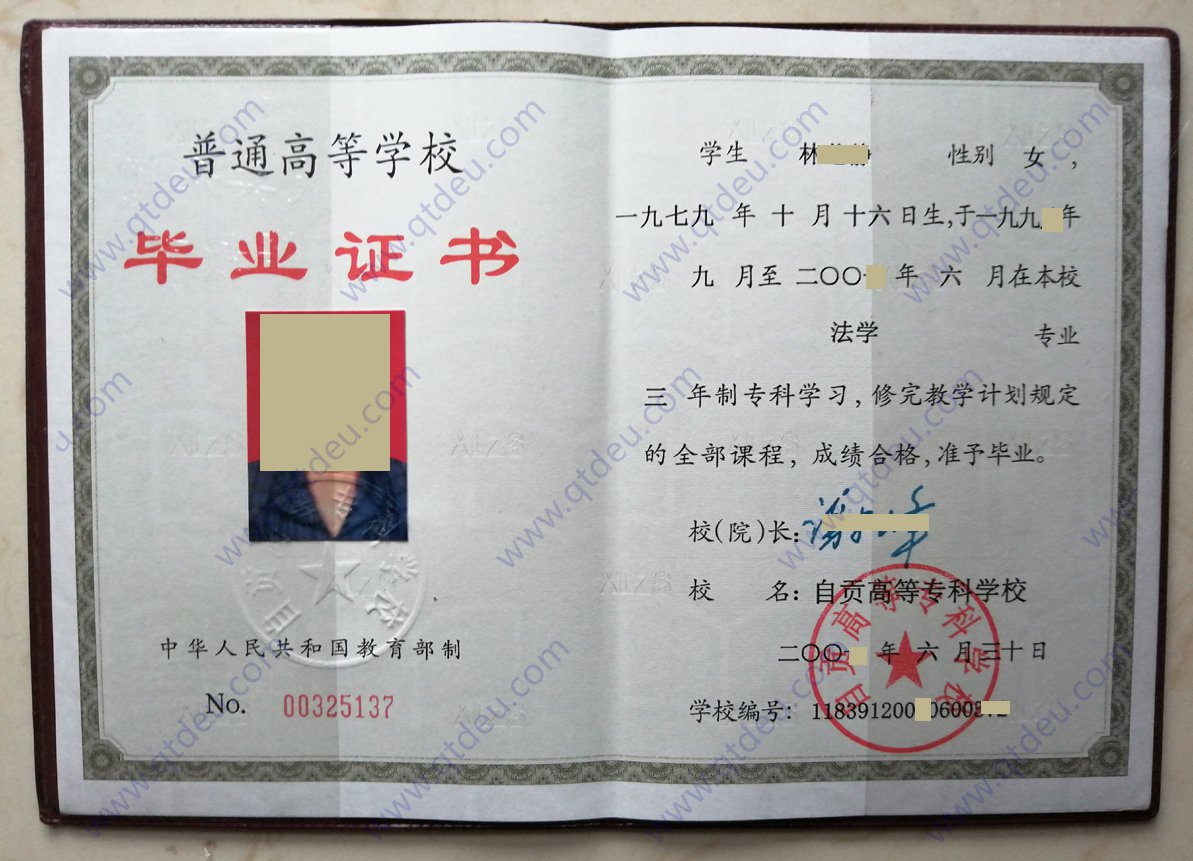 普通高等学校
毕业证书
中华人民共和国教育部制
No. 00325137
学生 林 性别 女,
一九七九 年 十 月 十六 日生,于一九九 年
九 月至 二〇〇 年 六 月在本校
法学 专业
三 年制专科学习,修完教学计划规定
的全部课程,成绩合格,准予毕业。
校(院)长:
校 名: 自贡高等专科学校
二〇〇 年 六 月三十日
学校编号: 118391200 0600
自贡高等专科学校
www.qtdeu.com